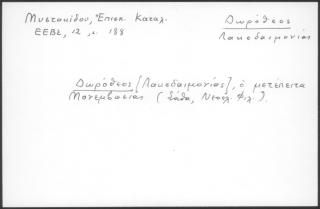 Μυστακίδου, Ἐπισκ. Καταλ.
ΕΕΒΣ, 12, σ. 188
Δωρόθεος
Λακεδαιμονίας
Δωρόθεος [Λακεδαιμονίας], ὁ μετέπειτα
Μονεμβασίας (Σάθα, Νεοελ. Φιλ.).